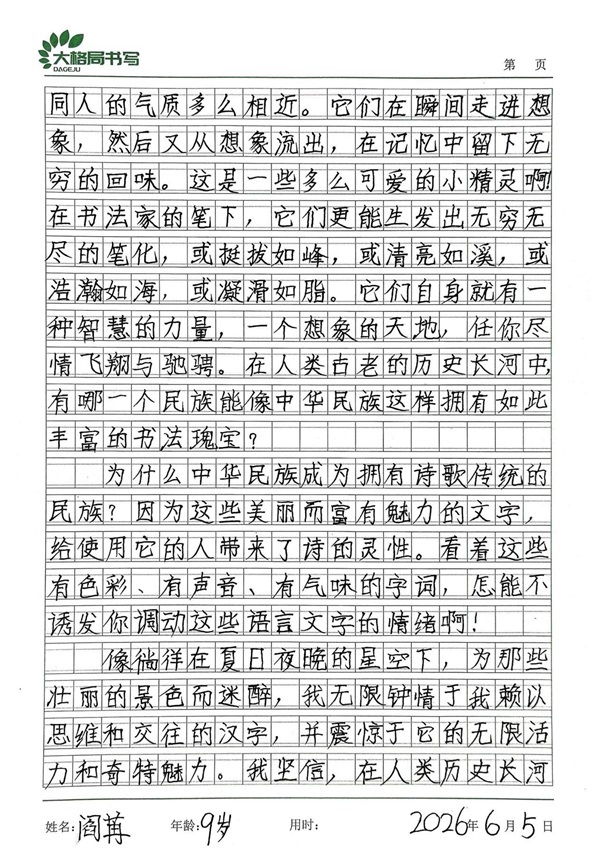 大格局书写
DAGEJU
第 页
同人的气质多么相近。它们在瞬间走进想
象，然后又从想象流出，在记忆中留下无
穷的回味。这是一些多么可爱的小精灵啊!
在书法家的笔下，它们更能生发出无穷无
尽的笔化，或挺拔如峰，或清亮如溪，或
浩瀚如海，或凝滑如脂。它们自身就有一
种智慧的力量，一个想象的天地，任你尽
情飞翔与驰骋。在人类古老的历史长河中，
有哪一个民族能像中华民族这样拥有如此
丰富的书法瑰宝？
为什么中华民族成为拥有诗歌传统的
民族？因为这些美丽而富有魅力的文字，
给使用它的人带来了诗的灵性。看着这些
有色彩、有声音、有气味的字词，怎能不
诱发你调动这些语言文字的情绪啊！
像徜徉在夏日夜晚的星空下，为那些
壮丽的景色而迷醉，我无限钟情于我赖以
思维和交往的汉字，并震惊于它的无限活
力和奇特魅力。我坚信，在人类历史长河
姓名: 阎苒 年龄: 9岁 用时: 2026年6月5日